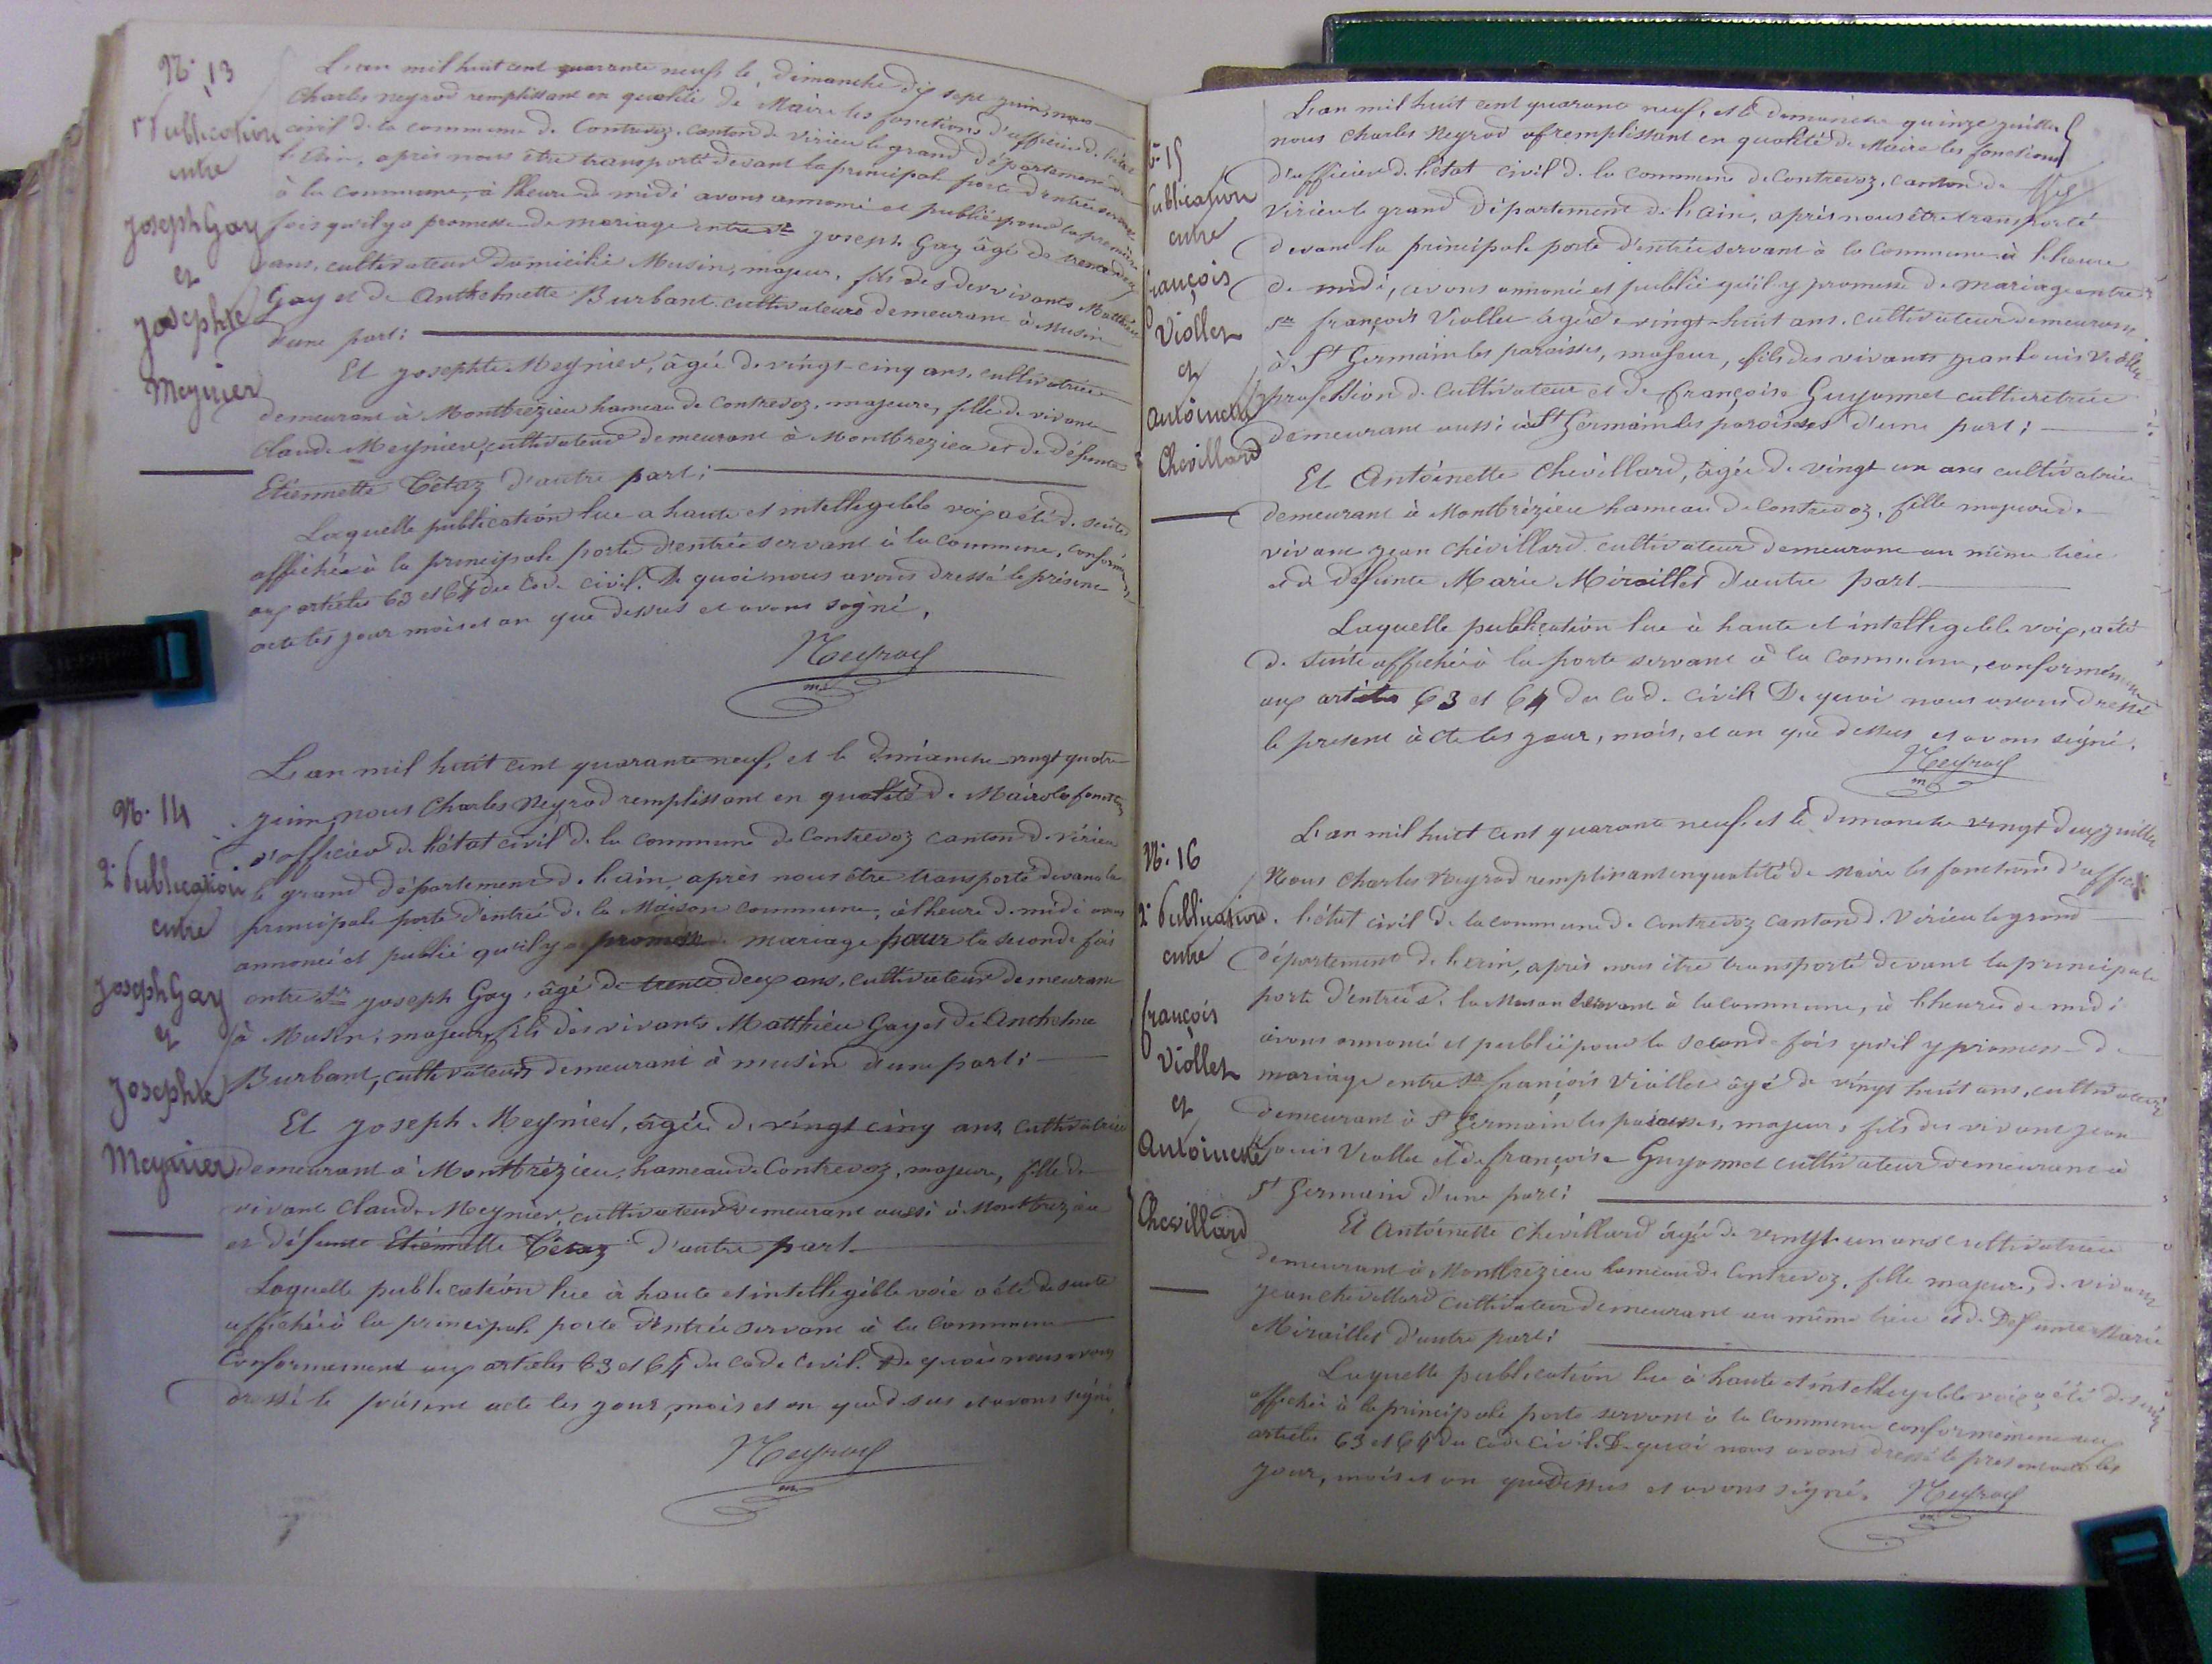 N.° 13
1.re Publication
entre
Joseph Gay
et
Josephte
Meynier
L'an mil huit cent quarante neuf, le dimanche dix sept juin, nous
Charles Neyrod remplissant en qualité de Maire les fonctions d'officier de l'état
civil de la commune de Contrevoz, canton de Virieu le grand département de
l'Ain, après nous être transporté devant la principale porte d'entrée servant
à la commune, à lheure de midi avons annoncé et publié pour la première
fois qu'il y a promesse de mariage entre Sr Joseph Gay âgé de trente deux
ans, cultivateur domicilié Musin, majeur, fils des vivants Matthieu
Gay et de Anthelmette Burbant cultivateurs demeurant à Musin
d'une part;
Et Josephte Meynier, âgée de vingt-cinq ans, cultivatrice
demeurant à Montbrézieu hameau de Contrevoz, majeure, fille de vivant
Claude Meynier, cultivateur demeurant à Montbrezieu et de défunte
Etiennette Tétaz d'autre part;
Laquelle publication lue a haute et intellegible voix a été de suite
affichée à la principale porte d'entrée servant à la commune, conformément
aux articles 63 et 64 du Code civil. De quoi nous avons dressé le présent
acte les jour mois et an que dessus et avons signé,
Neyrod
m.
N.° 14
2.e Publication
entre
Joseph Gay
et
Josephte
Meynier
L'an mil huit cent quarante neuf, et le dimanche vingt quatre
juin, nous Charles Neyrod remplissant en qualité de Maire les fonctions
d'officier de l'état civil de la commune de Contrevoz canton de Virieu
le grand département de l'ain, après nous être transporté devant la
principale porte d'entrée de la Maison commune, à lheure de midi avons
annoncé et publié qu'il y a promesse de mariage pour la seconde fois
entre Sr Joseph Gay, âgé de trente deux ans, cultivateur demeurant
à Musin, majeur, fils des vivants Matthieu Gay et de Anthelme
Burbant, cultivateurs demeurant à musin d'une part;
Et Joseph Meynier, âgée de vingt cinq ans, cultivatrice
demeurant à Montbrézieu, hameau de Contrevoz, majeure, fille de
vivant Claude Meynier, cultivateur demeurant aussi à Montbrezieu
et défunte Etiennette Tétaz d'autre part.
Laquelle publication lue à haute et intellegible voie a été de suite
affichée à la principale porte d'entrée servant à la commune
Conformement aux articles 63 et 64 du code civil. De quoi nous avons
dressé le présent acte les jour, mois et an que dessus et avons signé.
Neyrod
m.
N.° 15
Publication
entre
françois
Viollet
et
Antoinette
Chevillard
L'an mil huit cent quarante neuf, et le dimanche quinze juillet
nous Charles Neyrod remplissant en qualité de Maire les fonctions
d'officier de l'état civil de la commune de Contrevoz, canton de
Virieu le grand Département de l'ain, après nous être transporté
devant la principale porte d'entrée servant à la commune à l'heure
de midi, avons annoncé et publié qu'il y promesse de mariage entre
Sr françois Viollet âgé de vingt-huit ans, cultivateur demeurant
à St Germain les paroisses, majeur, fils des vivants jean Louis Viollet
profession de cultivateur et de françoise Guyonnet cultivatrice
demeurant aussi à St Germain les paroisses d'une part;
Et Antoinette Chevillard, âgée de vingt un ans cultivatrice
demeurant à Montbrézieu hameau de Contrevoz, fille majeure de
vivant jean Chevillard cultivateur demeurant au même lieu
et de défunte Marie Miraillet d'autre part
Laquelle publication lue à haute et intellegible voix, a été
de suite affichée à la porte servant à la commune, conformément
aux articles 63 et 64 du code civil. De quoi nous avons dressé
le présent acte les jour, mois, et an que dessus et avons signé.
Neyrod
m.
N.° 16
2.e Publication
entre
françois
Viollet
et
Antoinette
Chevillard
L'an mil huit cent quarante neuf, et le dimanche vingt deux juillet
Nous Charles Neyrod remplissant en qualité de Maire les fonctions d'officier
de l'état civil de la commune de Contrevoz canton de Virieu le grand
département de l'ain, après nous être transporté devant la principale
porte d'entrée de la Maison servant à la commune, à l'heure de midi
avons annoncé et publié pour la seconde fois qu'il y promesse de
mariage entre Sr françois Viollet âgé de vingt huit ans, cultivateur
demeurant à St Germain les paroisses, majeur, fils des vivant Jean
Louis Viollet et de françoise Guyonnet cultivateur demeurant à
St Germain d'une part;
Et Antoinette Chevillard âgée de vingt un ans cultivatrice
demeurant à Montbrezieu hameau de Contrevoz, fille majeure, de vivant
jean chevillard cultivateur demeurant au même lieu et de Defunte Marie
Miraillet d'autre part;
Laquelle publication lue à haute et intellegible voix, a été de suite
affichée à la principale porte servant à la commune conformément aux
articles 63 et 64 du code civil. De quoi nous avons dressé le present acte les
jour, mois et an que dessus et avons signé. Neyrod
m.